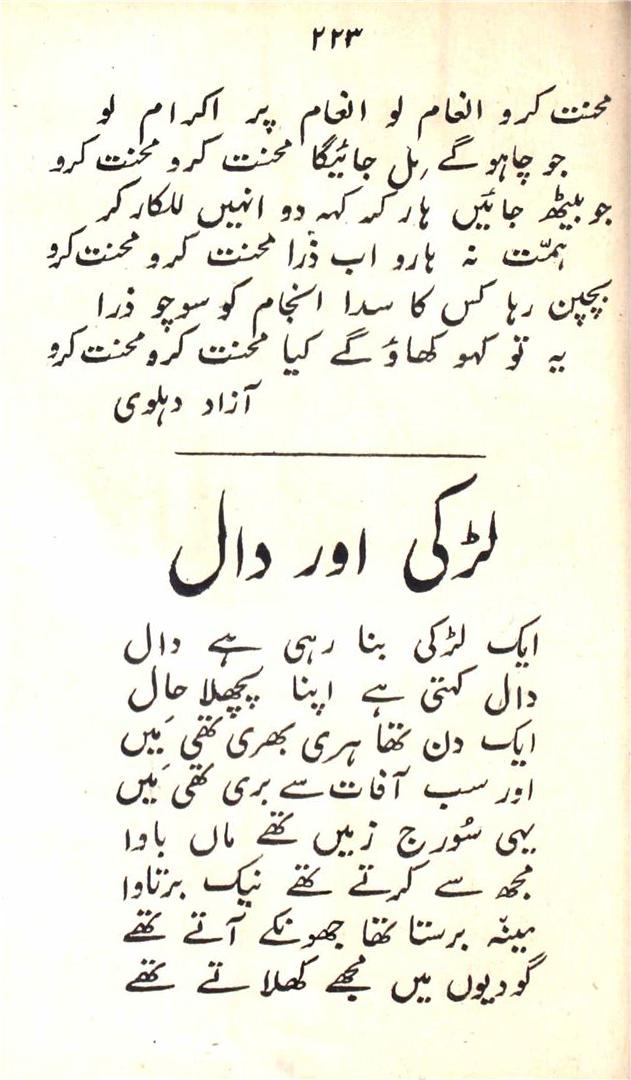 ۲۲۳
محنت کرو انعام لو انعام پر اکرام لو
جو چاہو گے مِل جائیگا محنت کرو محنت کرو
جو بیٹھ جائیں ہار کر کہہ دو انہیں للکار کر
ہمّت نہ ہارو اب ذرا محنت کرو محنت کرو
بچپن رہا کس کا سدا انجام کو سوچو ذرا
یہ تو کہو کھاؤ گے کیا محنت کرو محنت کرو
آزاد دہلوی
لڑکی اور دال
ایک لڑکی بنا رہی ہے دال
دال کہتی ہے اپنا پچھلا حال
ایک دن تھا ہری بھری تھی مَیں
اور سب آفات سے بری تھی مَیں
یہی سُورج زمیں تھے ماں باوا
مجھ سے کرتے تھے نیک برتاوا
مینہ برستا تھا جھونکے آتے تھے
گودیوں میں مجھے کھلاتے تھے